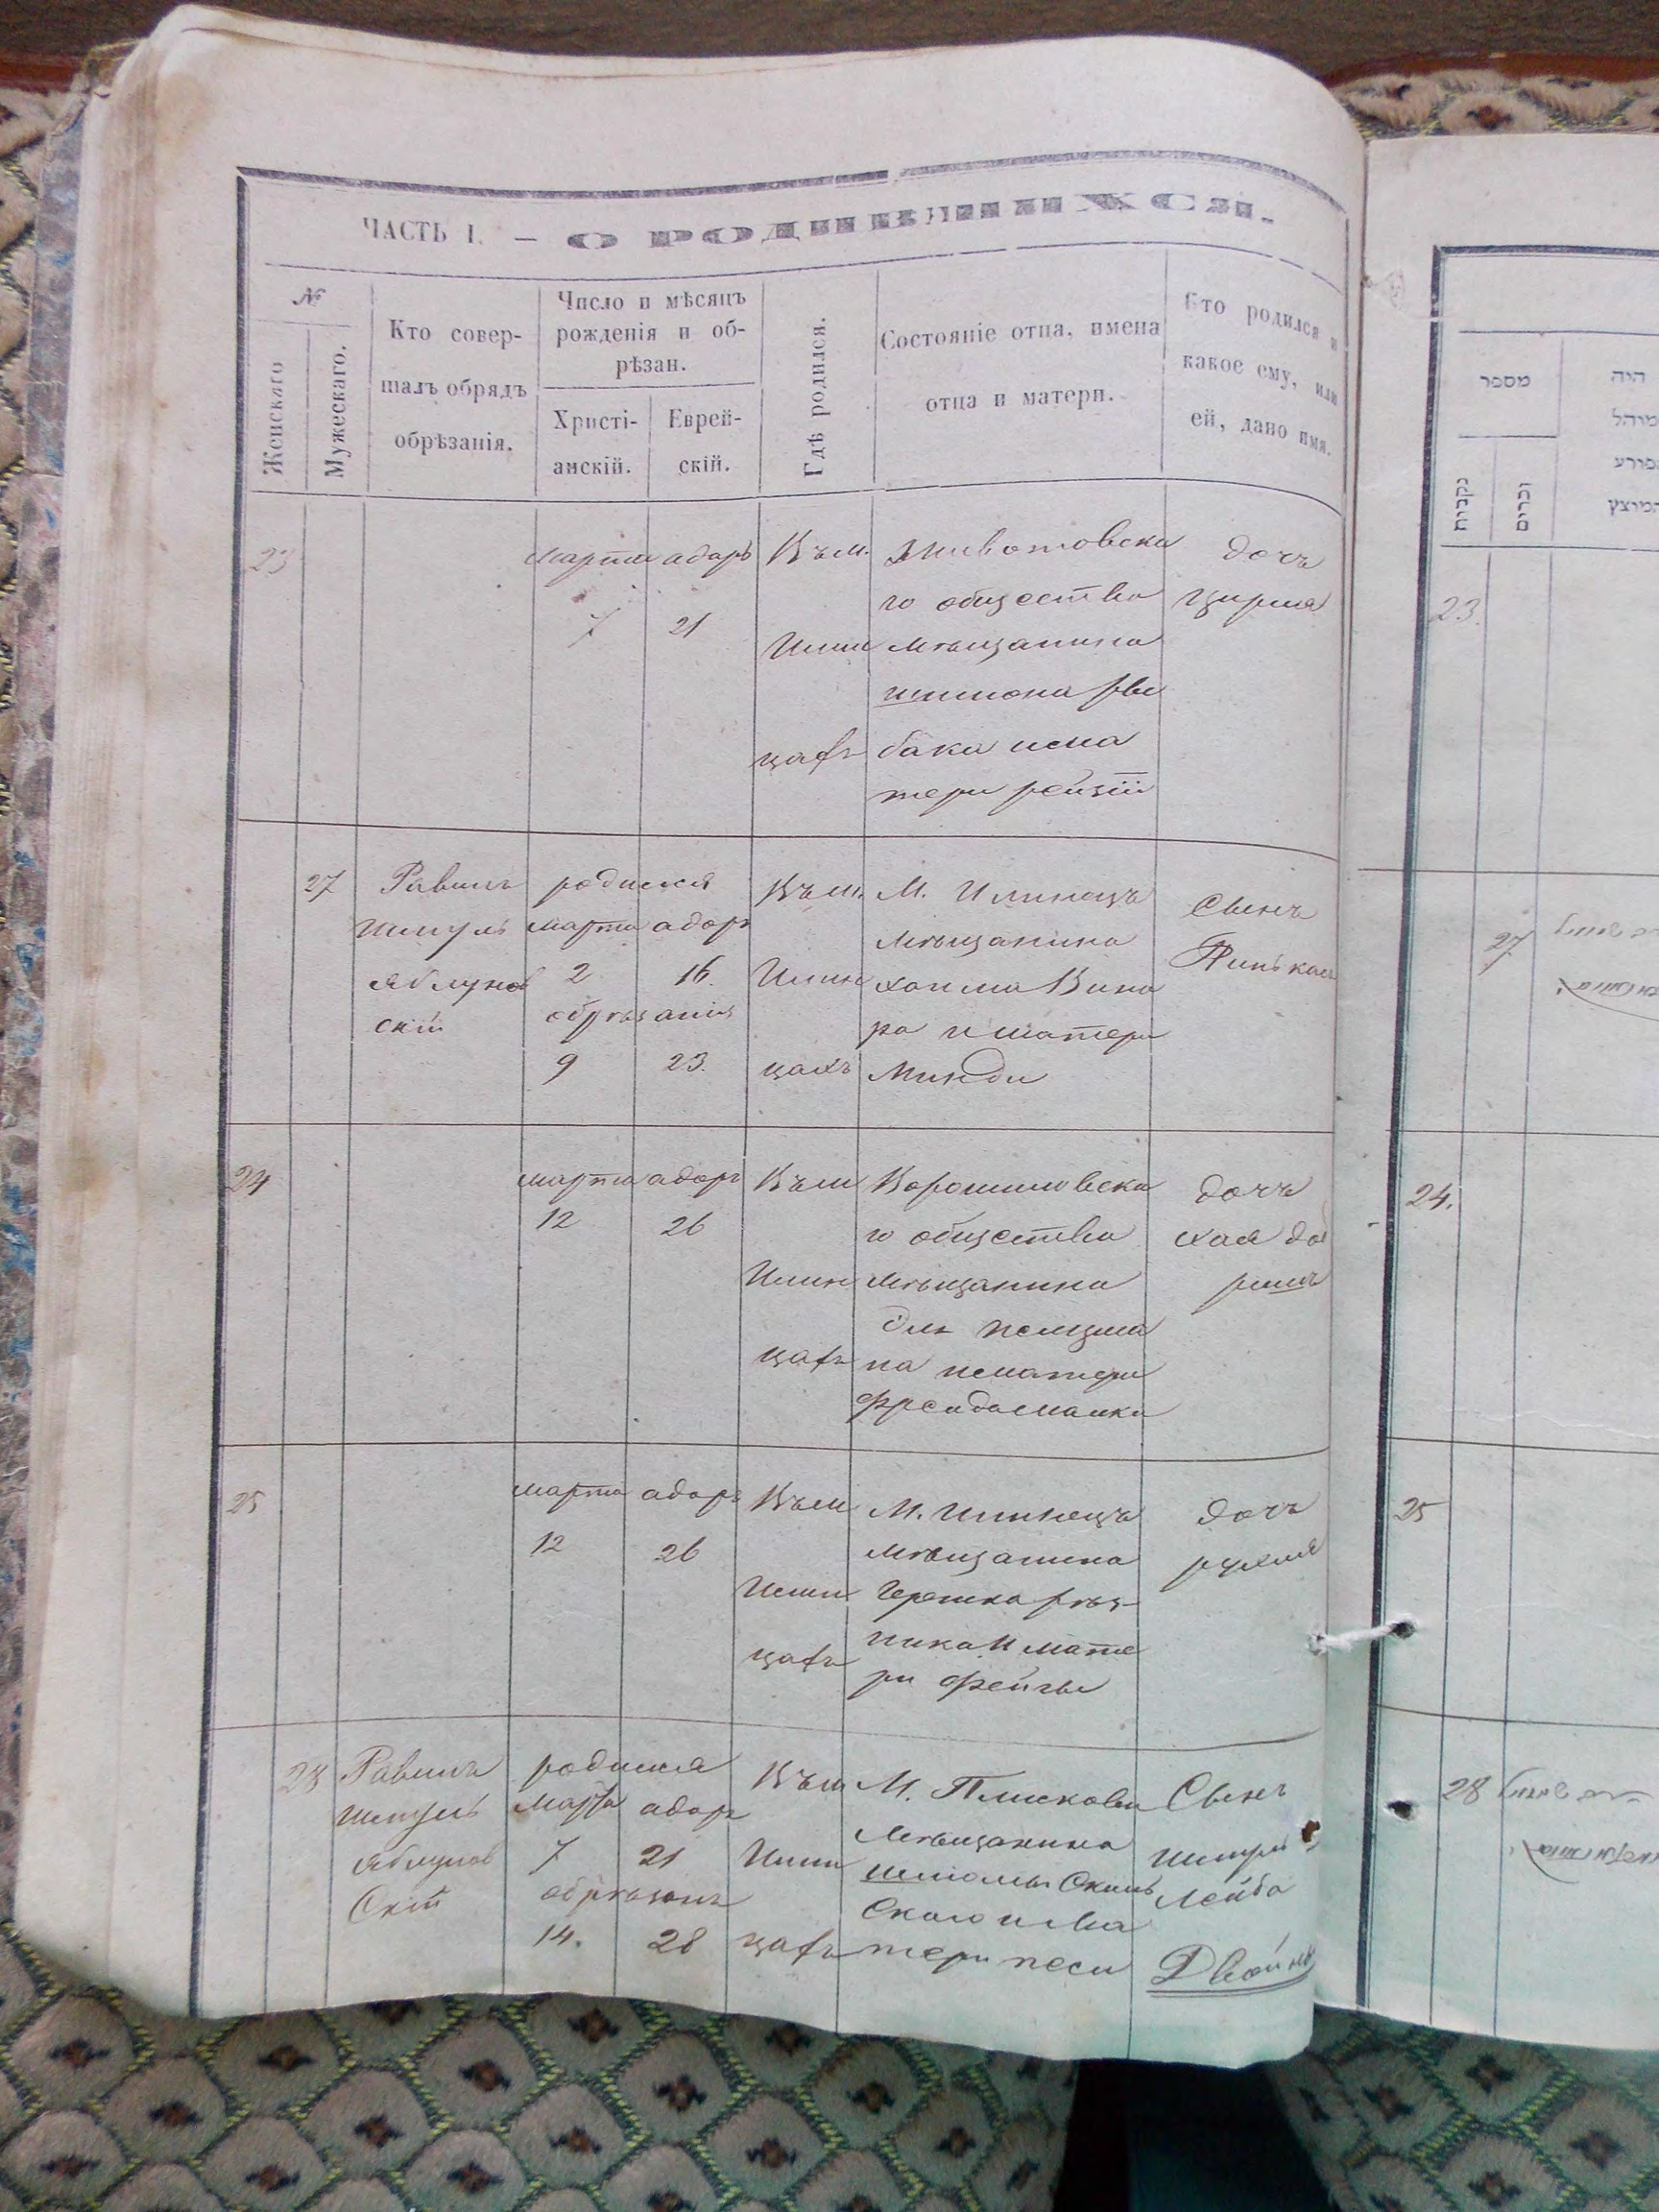 ЧАСТЬ I. — О РОДИВШИХСЯ.
№
Женскаго
Мужескаго.
Кто совер-
шалъ обрядъ
обрѣзанія.
Число и мѣсяцъ
рожденія и об-
рѣзан.
Христі-
анскій.
Еврей-
скій.
Гдѣ родился.
Состояніе отца, имена
отца и матери.
Кто родился и
какое ему, или
ей, дано имя.
23
марта адаръ
7 21
Въ м.
Илин
цахъ
Животовска
го общества
мѣщанина
шимона
бака и ма
тери рейзіи
дочь
27
Равинъ
Шмуль
Яблунов
скій
родился
марта адаръ
2 16.
обрѣзанія
9 23.
Въ м.
Илин
цахъ
М. Илинецъ
мѣщанина
хаима Вино
ра и матери
Минди
Сынъ
Пинькас
24
марта адаръ
12 26
Въ м
Илин
цахъ
Ворошиловска
го общества
мѣщанина
на и матери
дочь
хая
25
марта адаръ
12 26
Въ м
Илин
цахъ
М. Илинецъ
мѣщанина
Гершка рѣз-
ника и мате
ри Фейги
дочь
рухля
28
Равинъ
Шмуль
Яблунов
Скій
родился
марта адар
7 21
обрѣзанъ
14. 28
Въ м
Илин
цахъ
М. Плискова
мѣщанина
Скаго и ма
тери песи
Сынъ
Шмуль
Лейба
Двойня
מספר
נקבות
זכרים
היה
מוהל
פורע
המוצץ
23.
27
24.
25
28